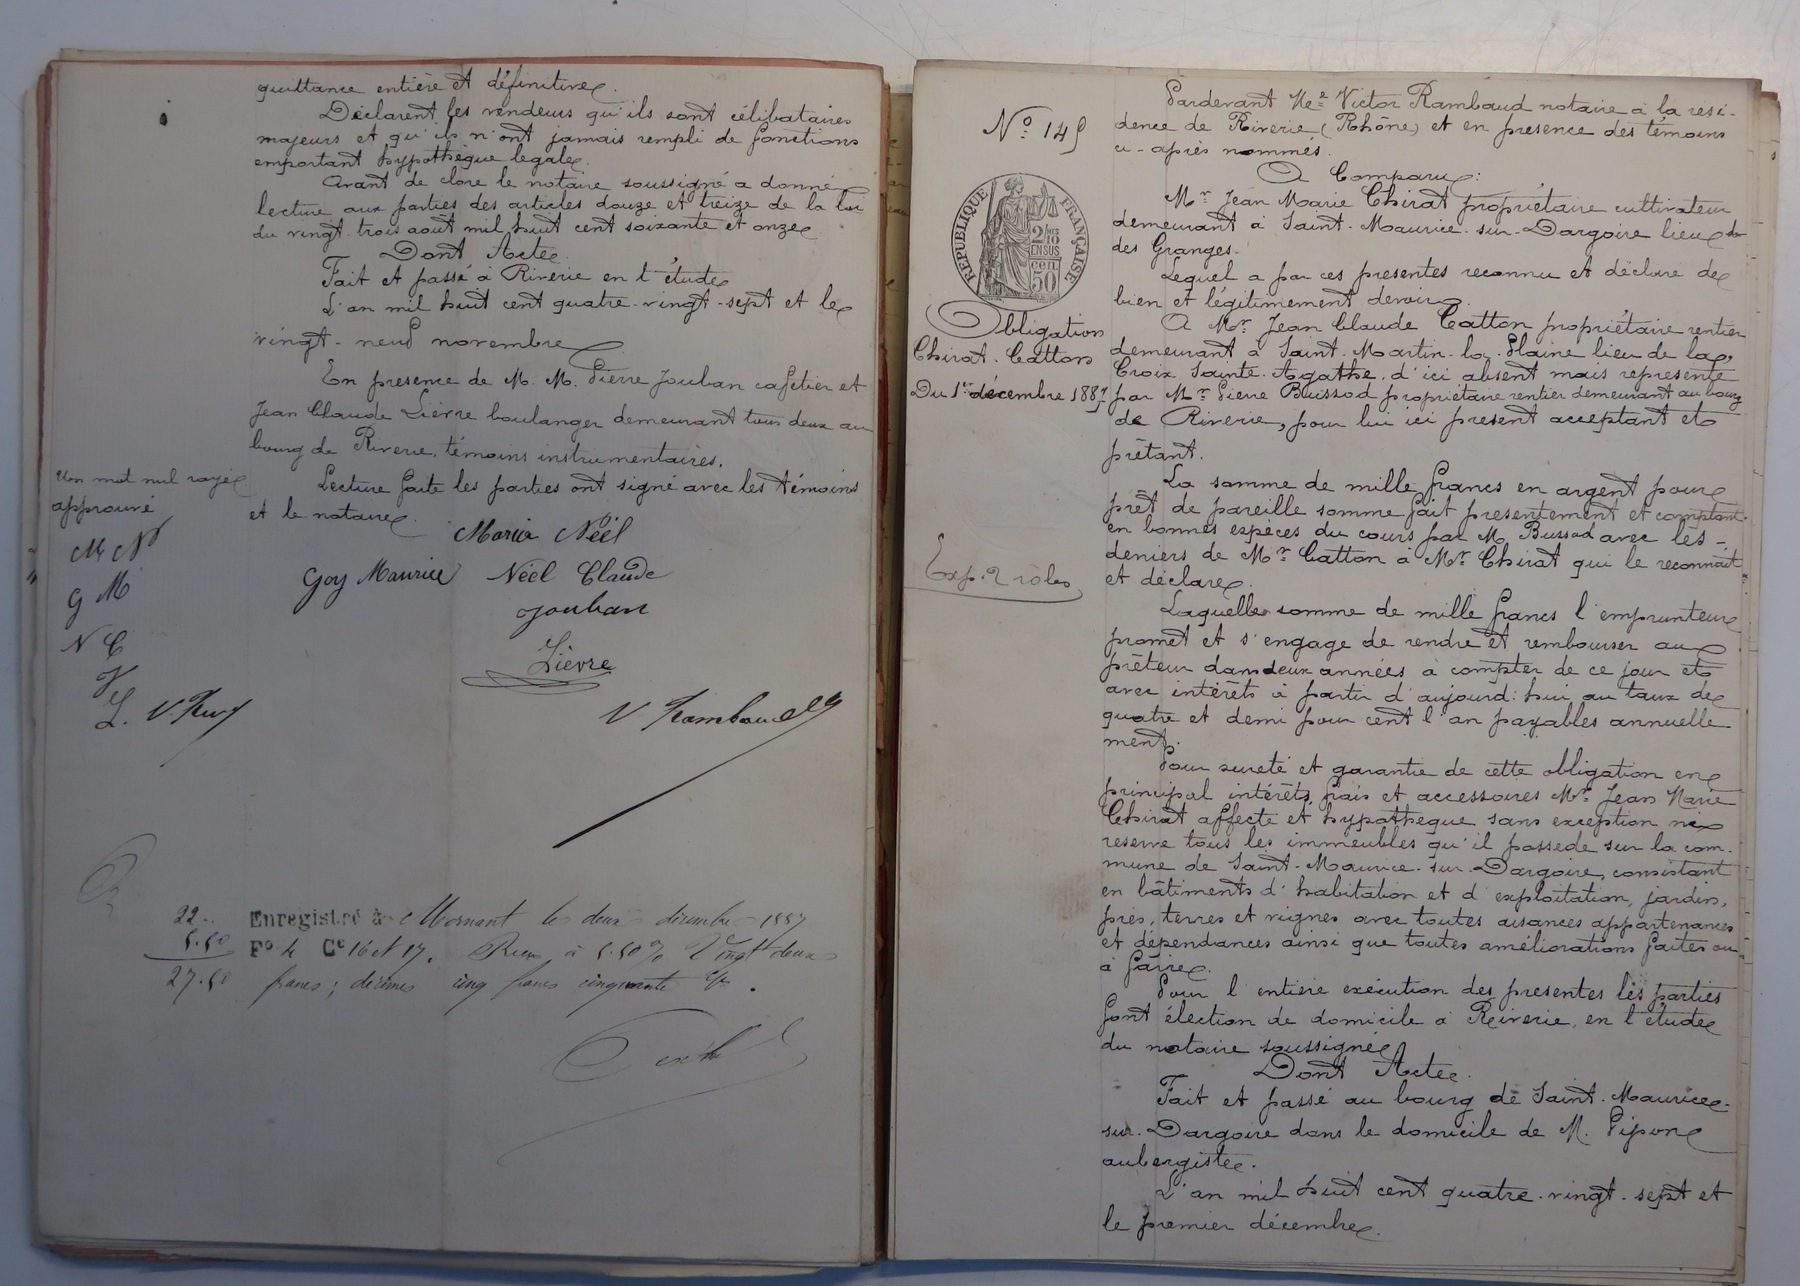 quittance entière et définitive.
Déclarent les vendeurs qu'ils sont célibataires
majeurs et qu'ils n'ont jamais rempli de fonctions
emportant hypothèque legale.
Avant de clore le notaire soussigné a donné
lecture aux parties des articles douze et treize de la loi
du vingt-trois août mil huit cent soixante et onze
Dont Acte
Fait et passé à Riverie en l'étude
L'an mil huit cent quatre-vingt-sept et le
vingt-neuf novembre
En presence de M. M. Pierre Jouban cafetier et
Jean Claude Lièvre boulanger demeurant tous deux au
bourg de Riverie, témoins instrumentaires.
Lecture faite les parties ont signé avec les témoins
et le notaire.
Un mot nul rayé
approuvé
M N
G M
N C
L. V R
Maria Néel
Goy Maurice Néel Claude
Jouban
Lièvre
V Rambaud
22 -
5.50
27.50
Enregistré à Mornant le deux décembre 1887
Fo 4 Ce 16 et 17. Reçu à 5.50 % Vingt deux
francs ; décimes cinq francs cinquante c.
No 145
RÉPUBLIQUE FRANÇAISE
2/10
EN SUS
50 cen
Obligation
Chirat-Catton
Du 1er décembre 1887
Exp. 2 rôles
Pardevant Me Victor Rambaud notaire à la rési-
dence de Riverie (Rhône) et en presence des témoins
ci-après nommés.
A Comparu:
Mr Jean Marie Chirat propriétaire cultivateur
demeurant à Saint-Maurice-sur-Dargoire lieu
des Granges.
Lequel a par ces presentes reconnu et déclaré
bien et légitimement devoir
A Mr Jean Claude Catton propriétaire rentier
demeurant à Saint-Martin-la-Plaine lieu de la
Croix Sainte-Agathe, d'ici absent mais représenté
par Mr Pierre Bussod propriétaire rentier demeurant au bourg
de Riverie, pour lui ici present acceptant et
prêtant.
La somme de mille francs en argent pour
prêt de pareille somme fait presentement et comptant
en bonnes espèces du cours par M Bussod avec les -
deniers de Mr Catton à Mr Chirat qui le reconnait
et déclare.
Laquelle somme de mille francs l'emprunteur
promet et s'engage de rendre et rembourser au
prêteur dans deux années à compter de ce jour et
avec intérêts à partir d'aujourd'hui au taux de
quatre et demi pour cent l'an payables annuelle-
ment.
Pour sureté et garantie de cette obligation en
principal intérêts, frais et accessoires Mr Jean Marie
Chirat affecte et hypotheque sans exception ni
reserve tous les immeubles qu'il possede sur la com-
mune de Saint-Maurice-sur-Dargoire, consistant
en bâtiments d'habitation et d'exploitation, jardin,
prés, terres et vignes avec toutes aisances appartenances
et dépendances ainsi que toutes améliorations faites ou
à faire.
Pour l'entière exécution des presentes les parties
font élection de domicile à Riverie, en l'étude
du notaire soussigné
Dont Acte.
Fait et passé au bourg de Saint-Maurice-
sur-Dargoire dans le domicile de M. Pipon
aubergiste.
L'an mil huit cent quatre-vingt-sept et
le premier décembre.